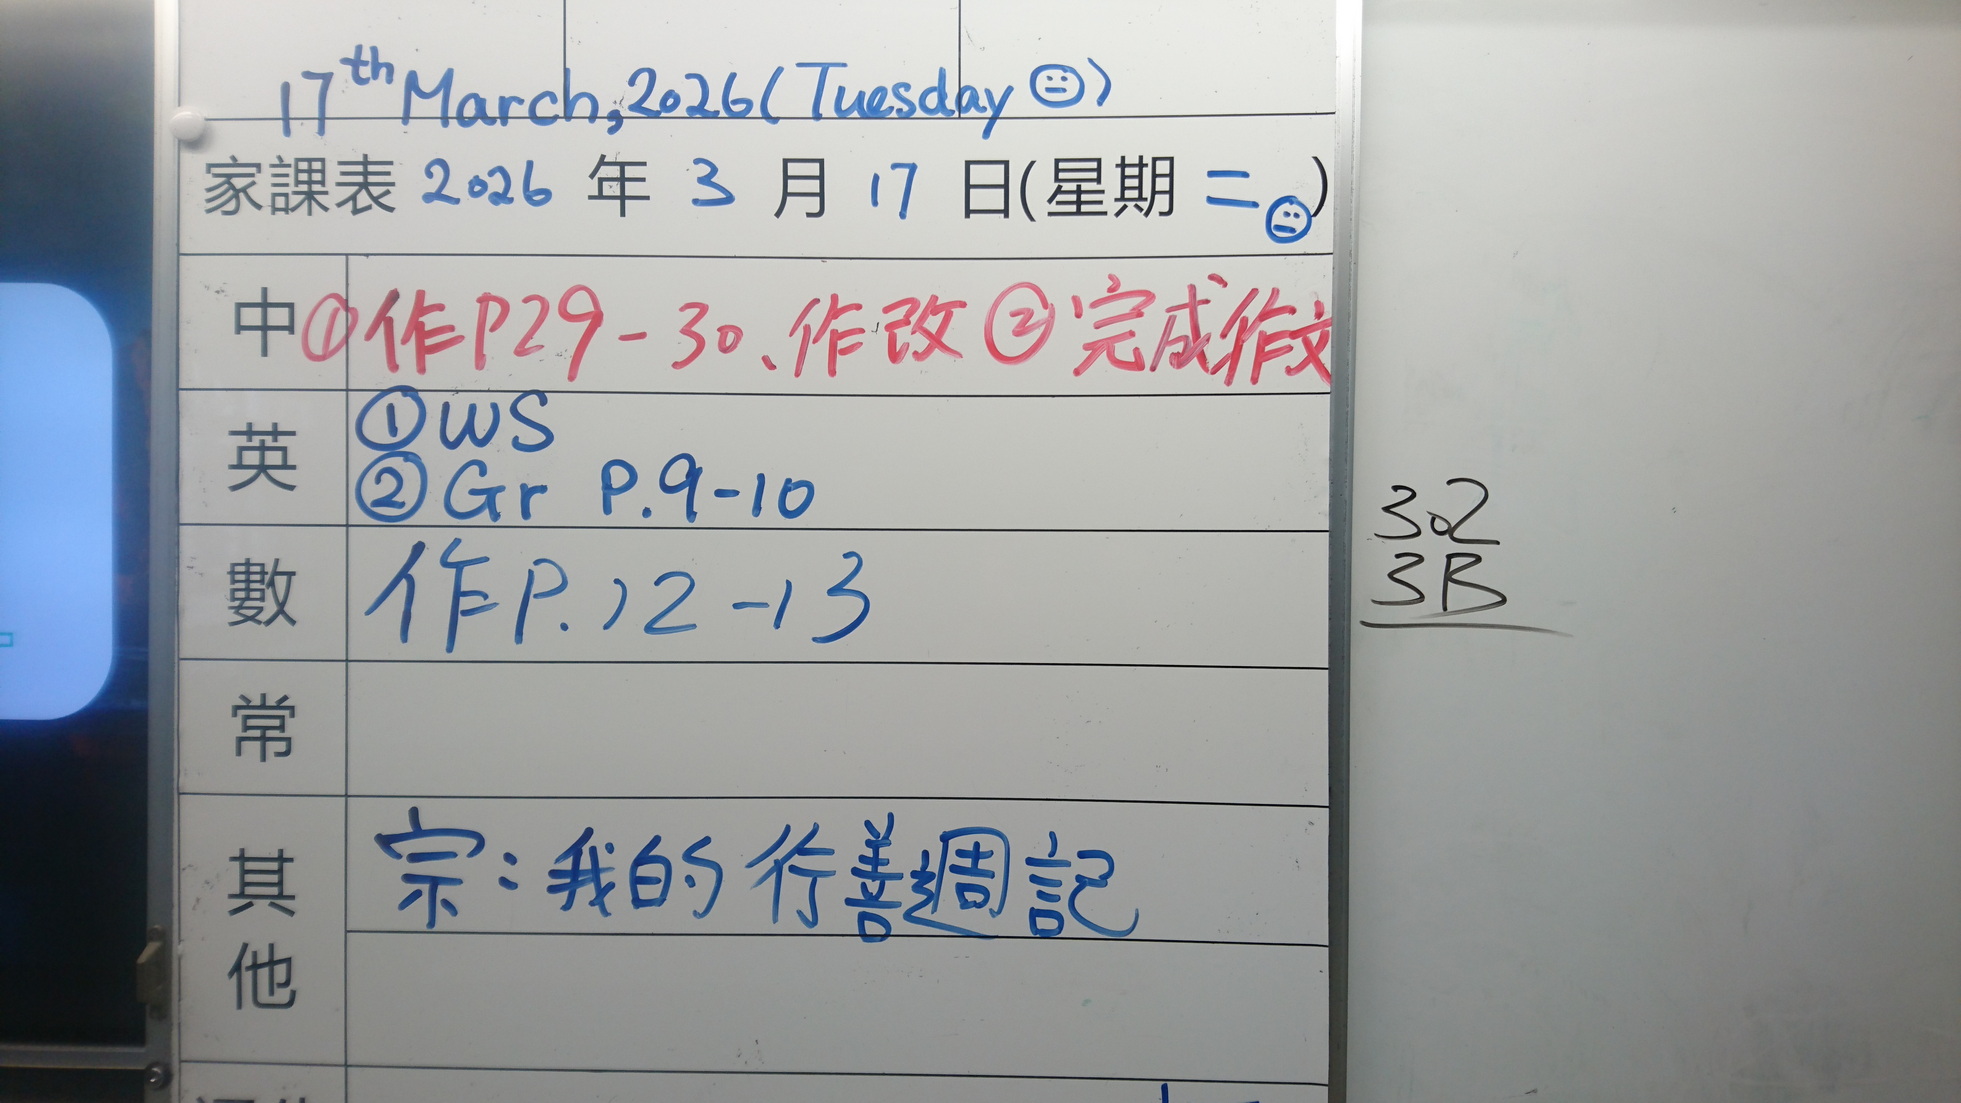 17th March, 2026 (Tuesday)
家課表 2026 年 3 月 17 日(星期 二)
中 ①作P29-30、作改 ②完成作文
英 ①WS
②Gr P.9-10
數 作P.12-13
常
其他 宗:我的行善週記
302
3B